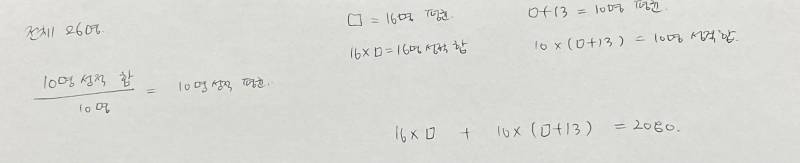 전체 26명.
□ = 16명 평균.
□+13 = 10명 평균.
16×□ = 16명 성적 합
10×(□+13) = 10명 성적 합.
10명 성적 합
10명
= 10명 성적 평균.
16×□ + 10×(□+13) = 2080.